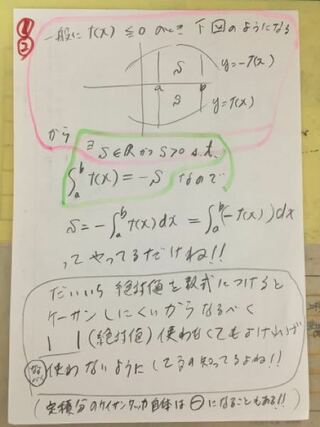 ①
②
一般に f(x) ≦ 0 のとき 下図のようになる
S
y=-f(x)
a b
S
y=f(x)
から
∃S∈R かつ S>0 s.t.
∫_a^b f(x) = -S なので
S = -∫_a^b f(x)dx = ∫_a^b (-f(x))dx
ってやってるだけね!!
だいいち 絶対値を数式につけると
ケーサンしにくいからなるべく
| | (絶対値) 使わなくてもよければ
使わないようにしてるの知ってるよね!!
(定積分のケイサンケッカ自体は⊖になることもある!!)